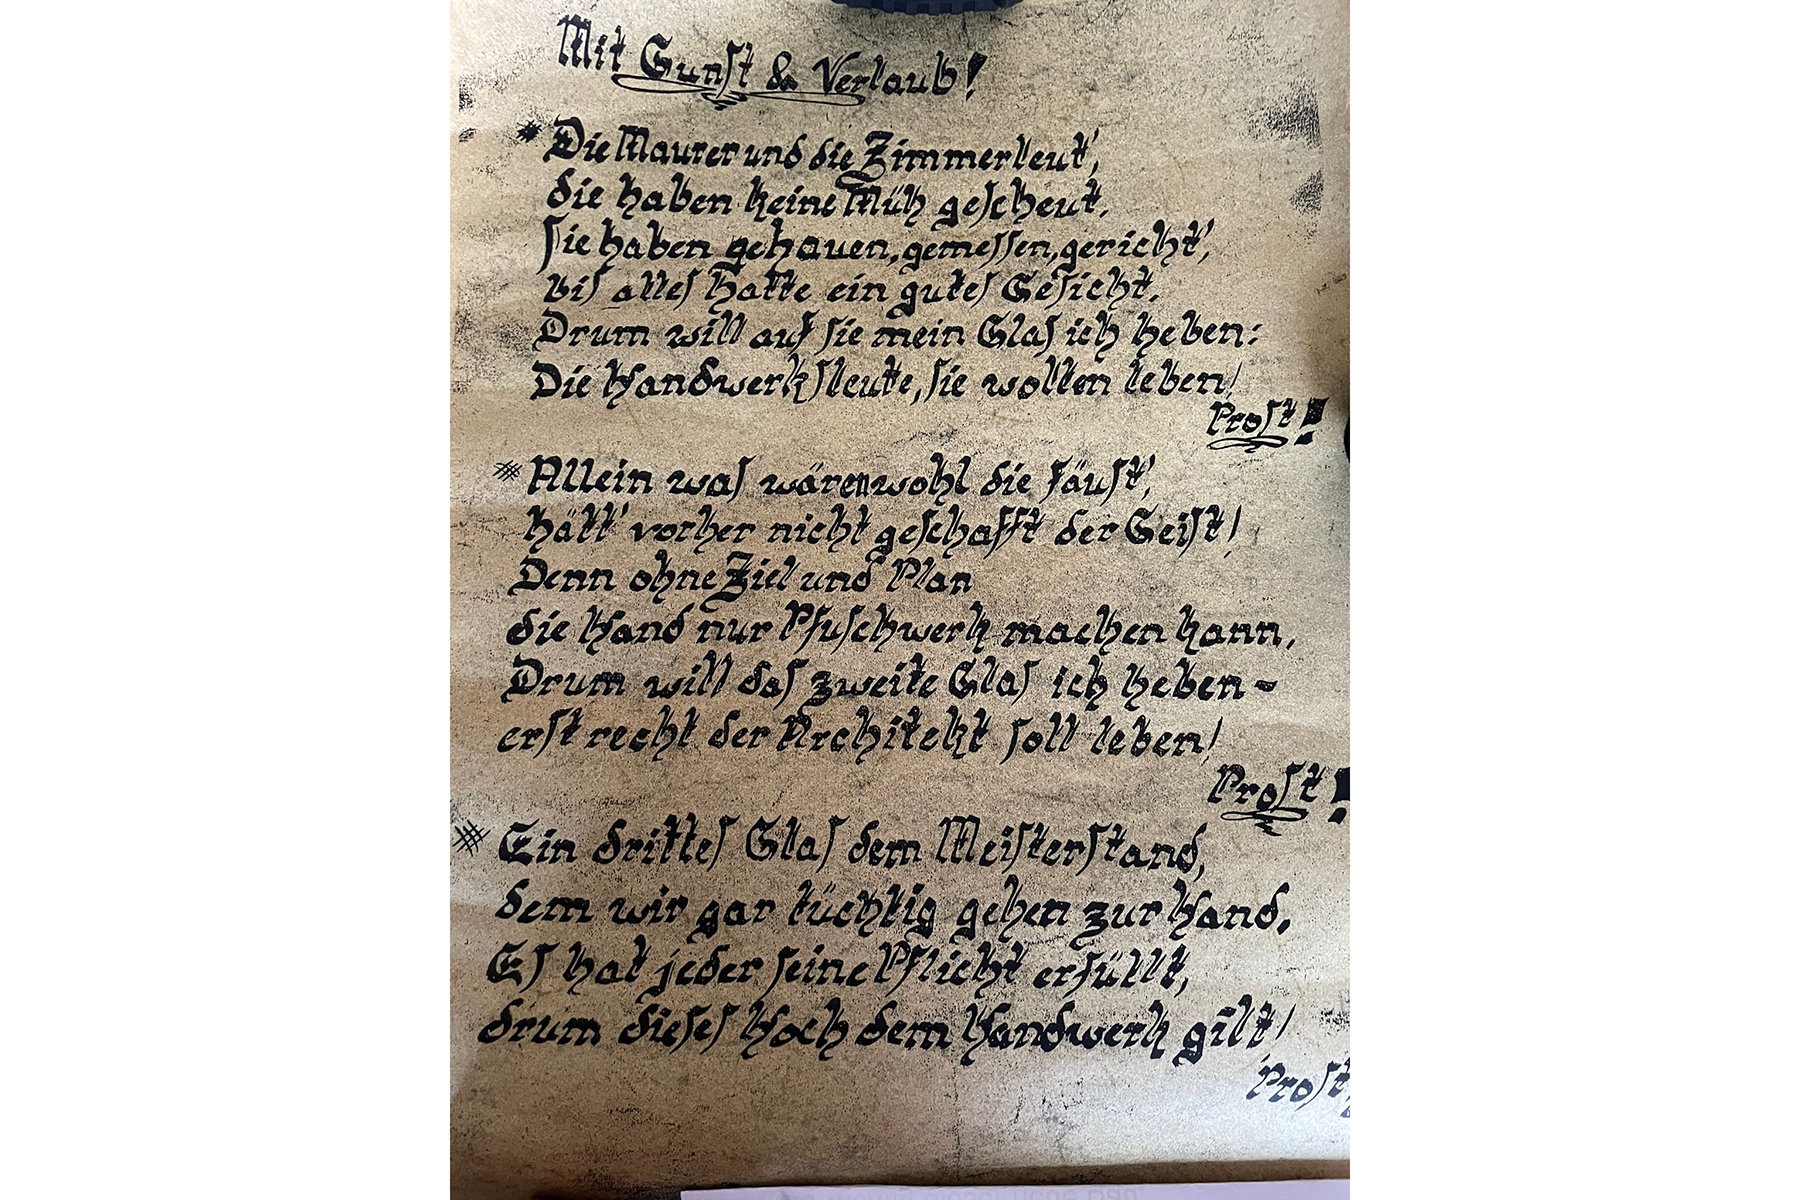 Mit Gunst & Verlaub!
Die Maurer und die Zimmerleut',
die haben keine Müh gescheut.
Sie haben gehauen, gemessen, gericht',
bis alles hatte ein gutes Gesicht.
Drum will auf sie mein Glas ich heben:
Die Handwerksleute, sie wollen leben!
Prost!
Allein was wären wohl die Fäust',
hätt' vorher nicht geschafft der Geist!
Denn ohne Ziel und Plan
die Hand nur Pfuschwerk machen kann,
Drum will das zweite Glas ich heben-
erst recht der Architekt soll leben!
Prost!
Ein drittes Glas dem Meisterstand,
dem wir gar tüchtig gehen zur Hand.
Es hat jeder seine Pflicht erfüllt,
drum dieses Hoch dem Handwerk gilt!
Prost